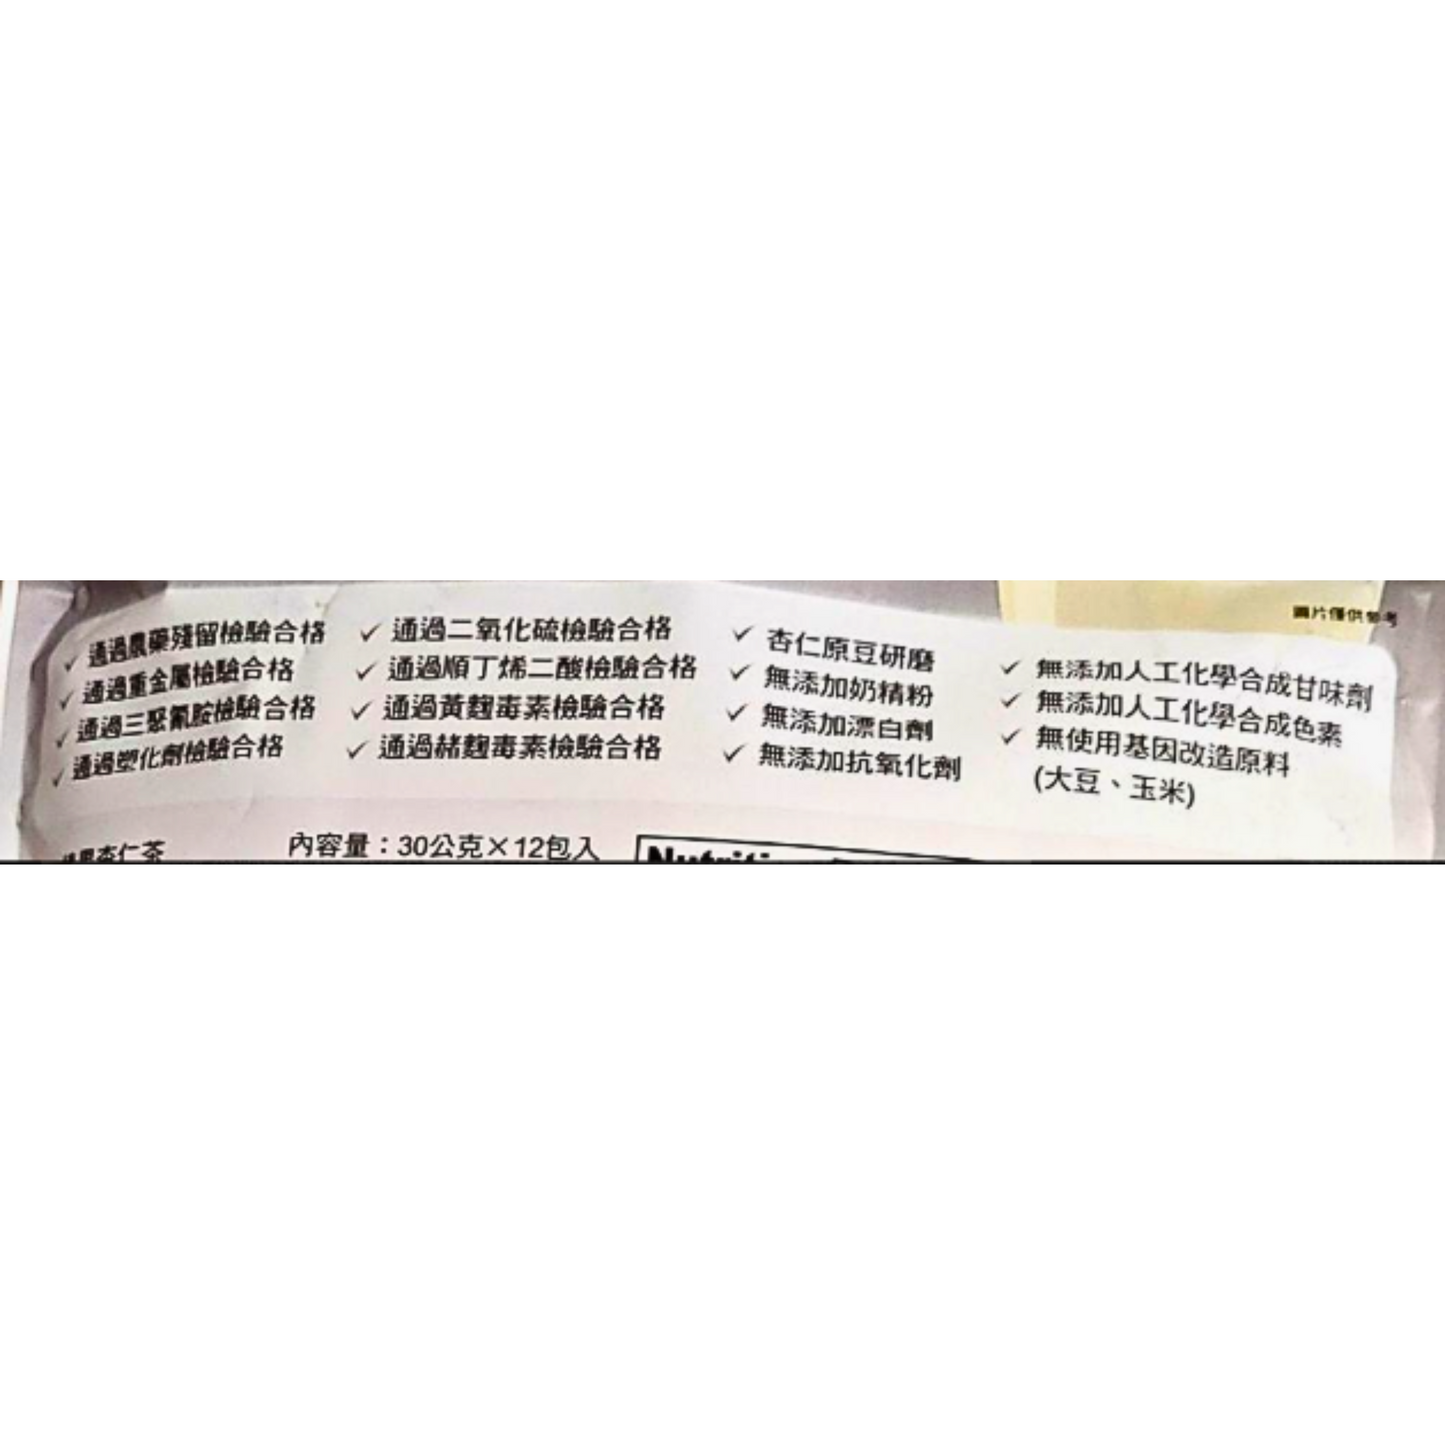 圖片僅供參考
通過農藥殘留檢驗合格
通過重金屬檢驗合格
通過三聚氰胺檢驗合格
通過塑化劑檢驗合格
通過二氧化硫檢驗合格
通過順丁烯二酸檢驗合格
通過黃麴毒素檢驗合格
通過赭麴毒素檢驗合格
杏仁原豆研磨
無添加奶精粉
無添加漂白劑
無添加抗氧化劑
無添加人工化學合成甘味劑
無添加人工化學合成色素
無使用基因改造原料
(大豆、玉米)
杏仁茶
內容量：30公克×12包入